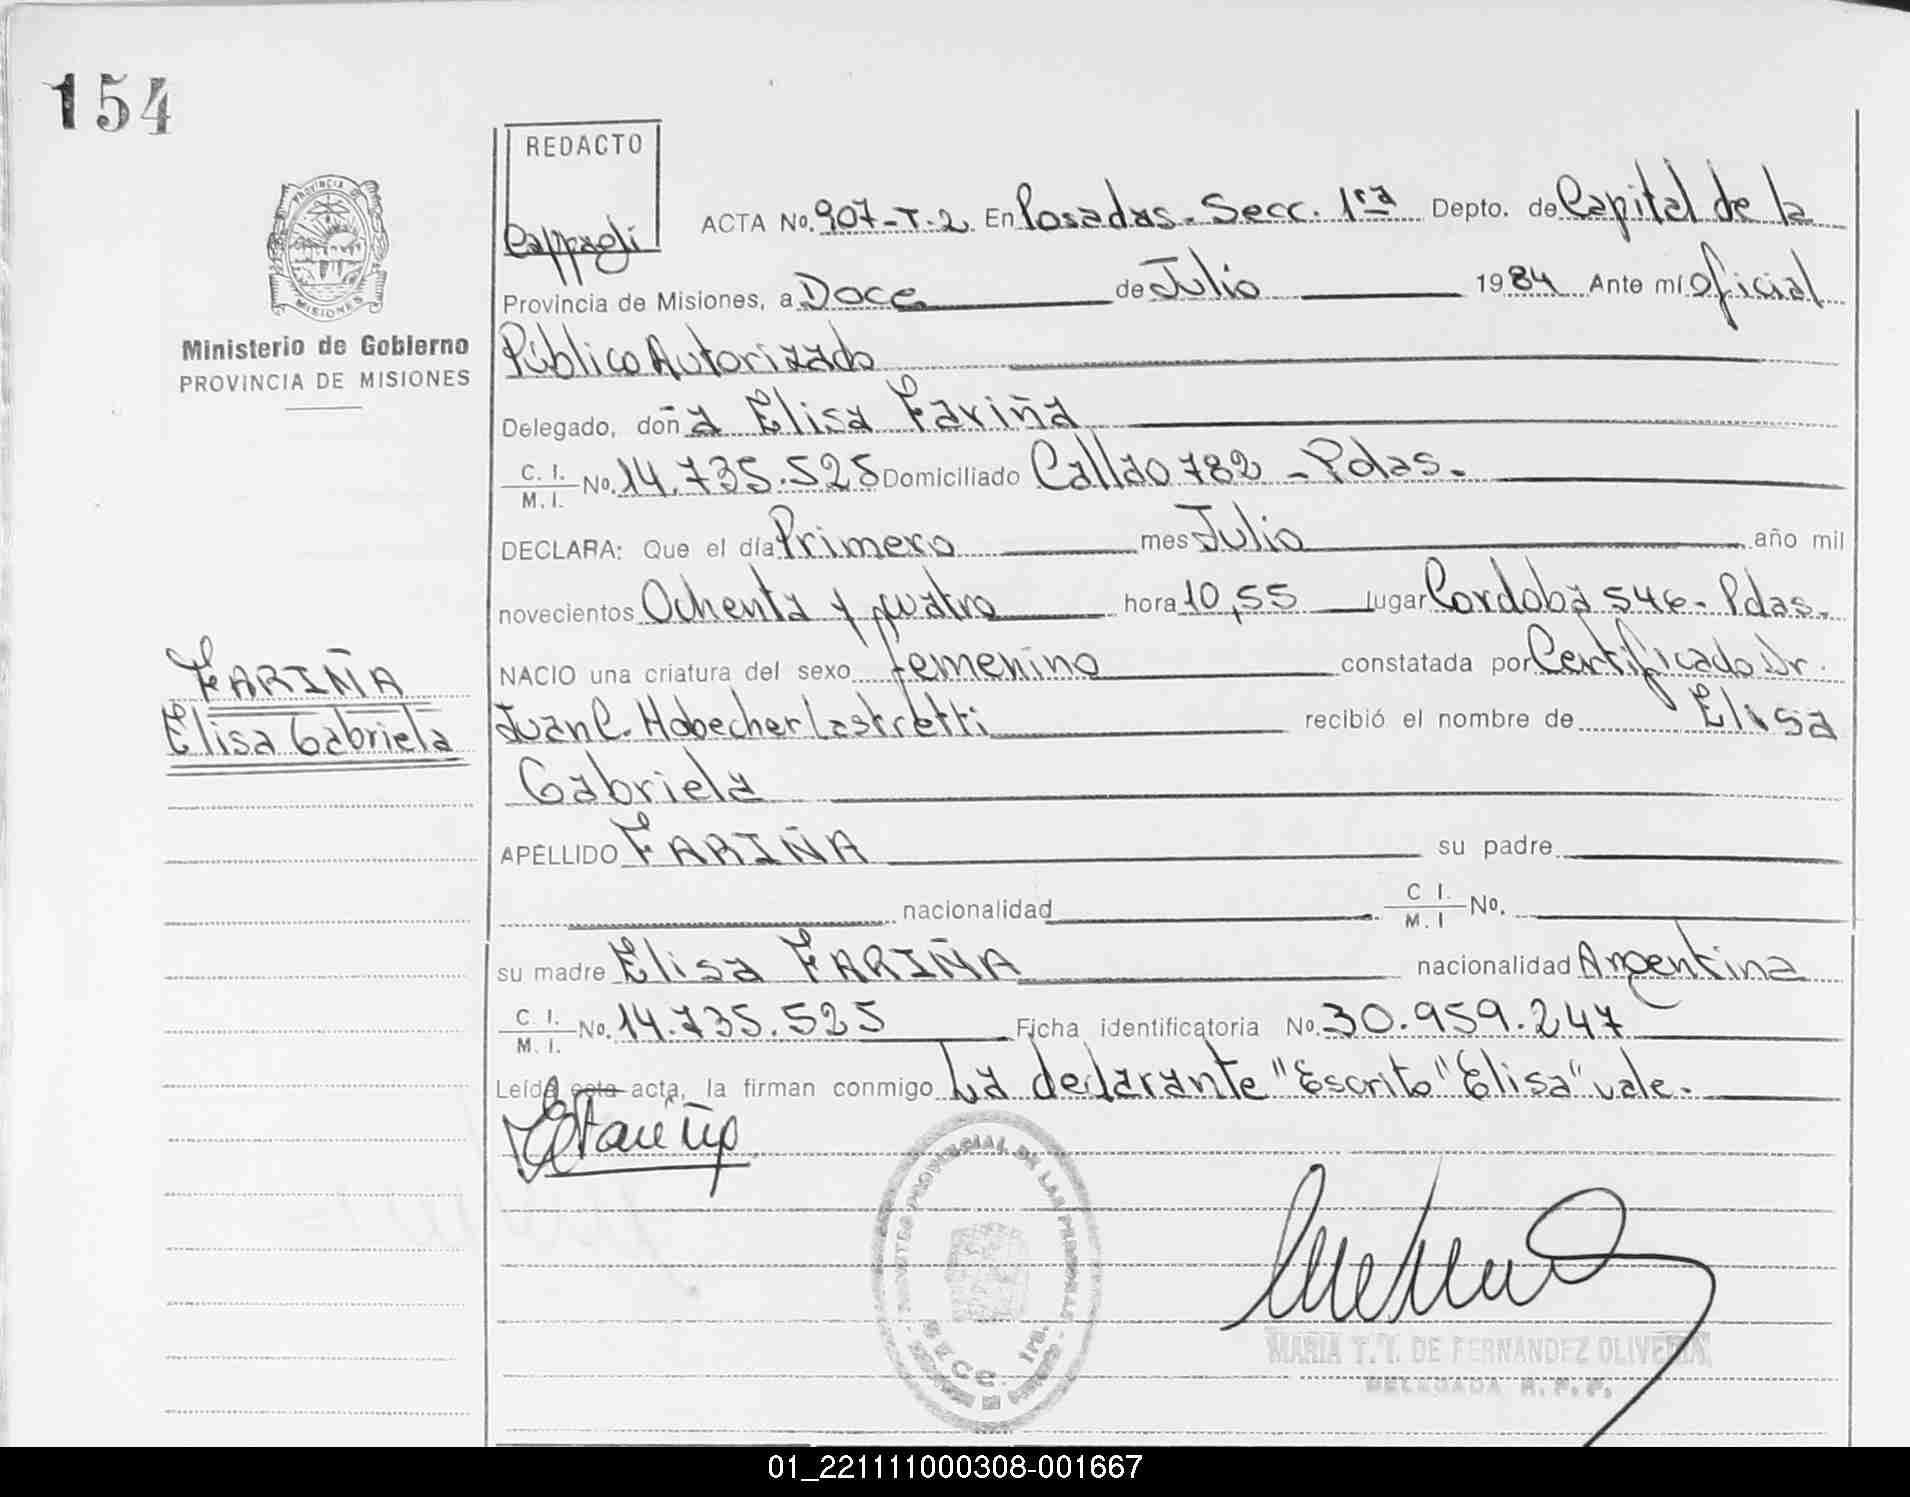 154
REDACTO
Cappagli
PROVINCIA DE
MISIONES
Ministerio de Gobierno
PROVINCIA DE MISIONES
ACTA No. 907-T-2 En Posadas - Secc. 1ra Depto. de Capital de la
Provincia de Misiones, a Doce de Julio 1984 Ante mí Oficial
Público Autorizado
Delegado, doña Elisa Fariña
C. I. / M. I. No. 14.735.525 Domiciliado Callao 782 - Pdas.
DECLARA: Que el día Primero mes Julio año mil
novecientos Ochenta y cuatro hora 10,55 lugar Cordoba 546 - Pdas.
NACIO una criatura del sexo femenino constatada por Certificado Dr.
Juan C. Hobecher Lastretti recibió el nombre de Elisa
Gabriela
FARIÑA
Elisa Gabriela
APELLIDO FARIÑA su padre
nacionalidad C I. / M. I No.
su madre Elisa FARIÑA nacionalidad Argentina
C. I. / M. I. No. 14.735.525 Ficha identificatoria No. 30.959.247
Leída esta acta, la firman conmigo La declarante "Escrito" "Elisa" vale.
EFariña
PROVINCIAL DE LAS PERSONAS
SECC. 1ra.
MARIA T. I. DE FERNANDEZ OLIVERA
DELEGADA R. P. P.
01_221111000308-001667